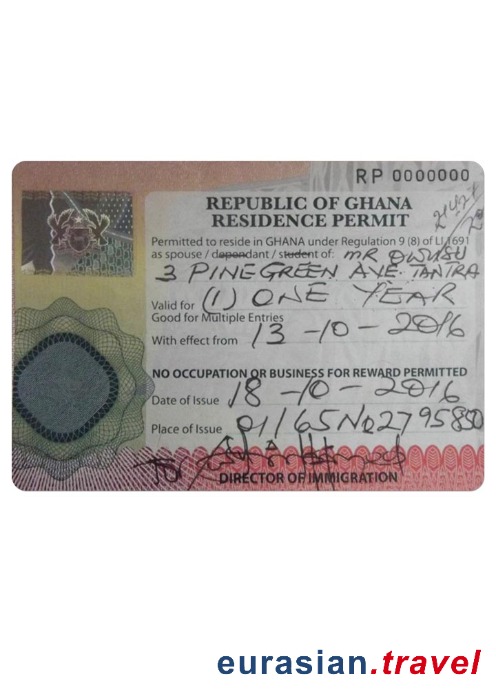 RP 0000000
REPUBLIC OF GHANA
RESIDENCE PERMIT
Permitted to reside in GHANA under Regulation 9 (8) of LI 1691
as spouse / dependant / student of: MR OWUSU
3 PINEGREEN AVE. TANTRA
Valid for (1) ONE YEAR
Good for Multiple Entries
With effect from 13-10-2016
NO OCCUPATION OR BUSINESS FOR REWARD PERMITTED
Date of Issue 18-10-2016
Place of Issue 01/65 No 2795850
DIRECTOR OF IMMIGRATION
eurasian.travel